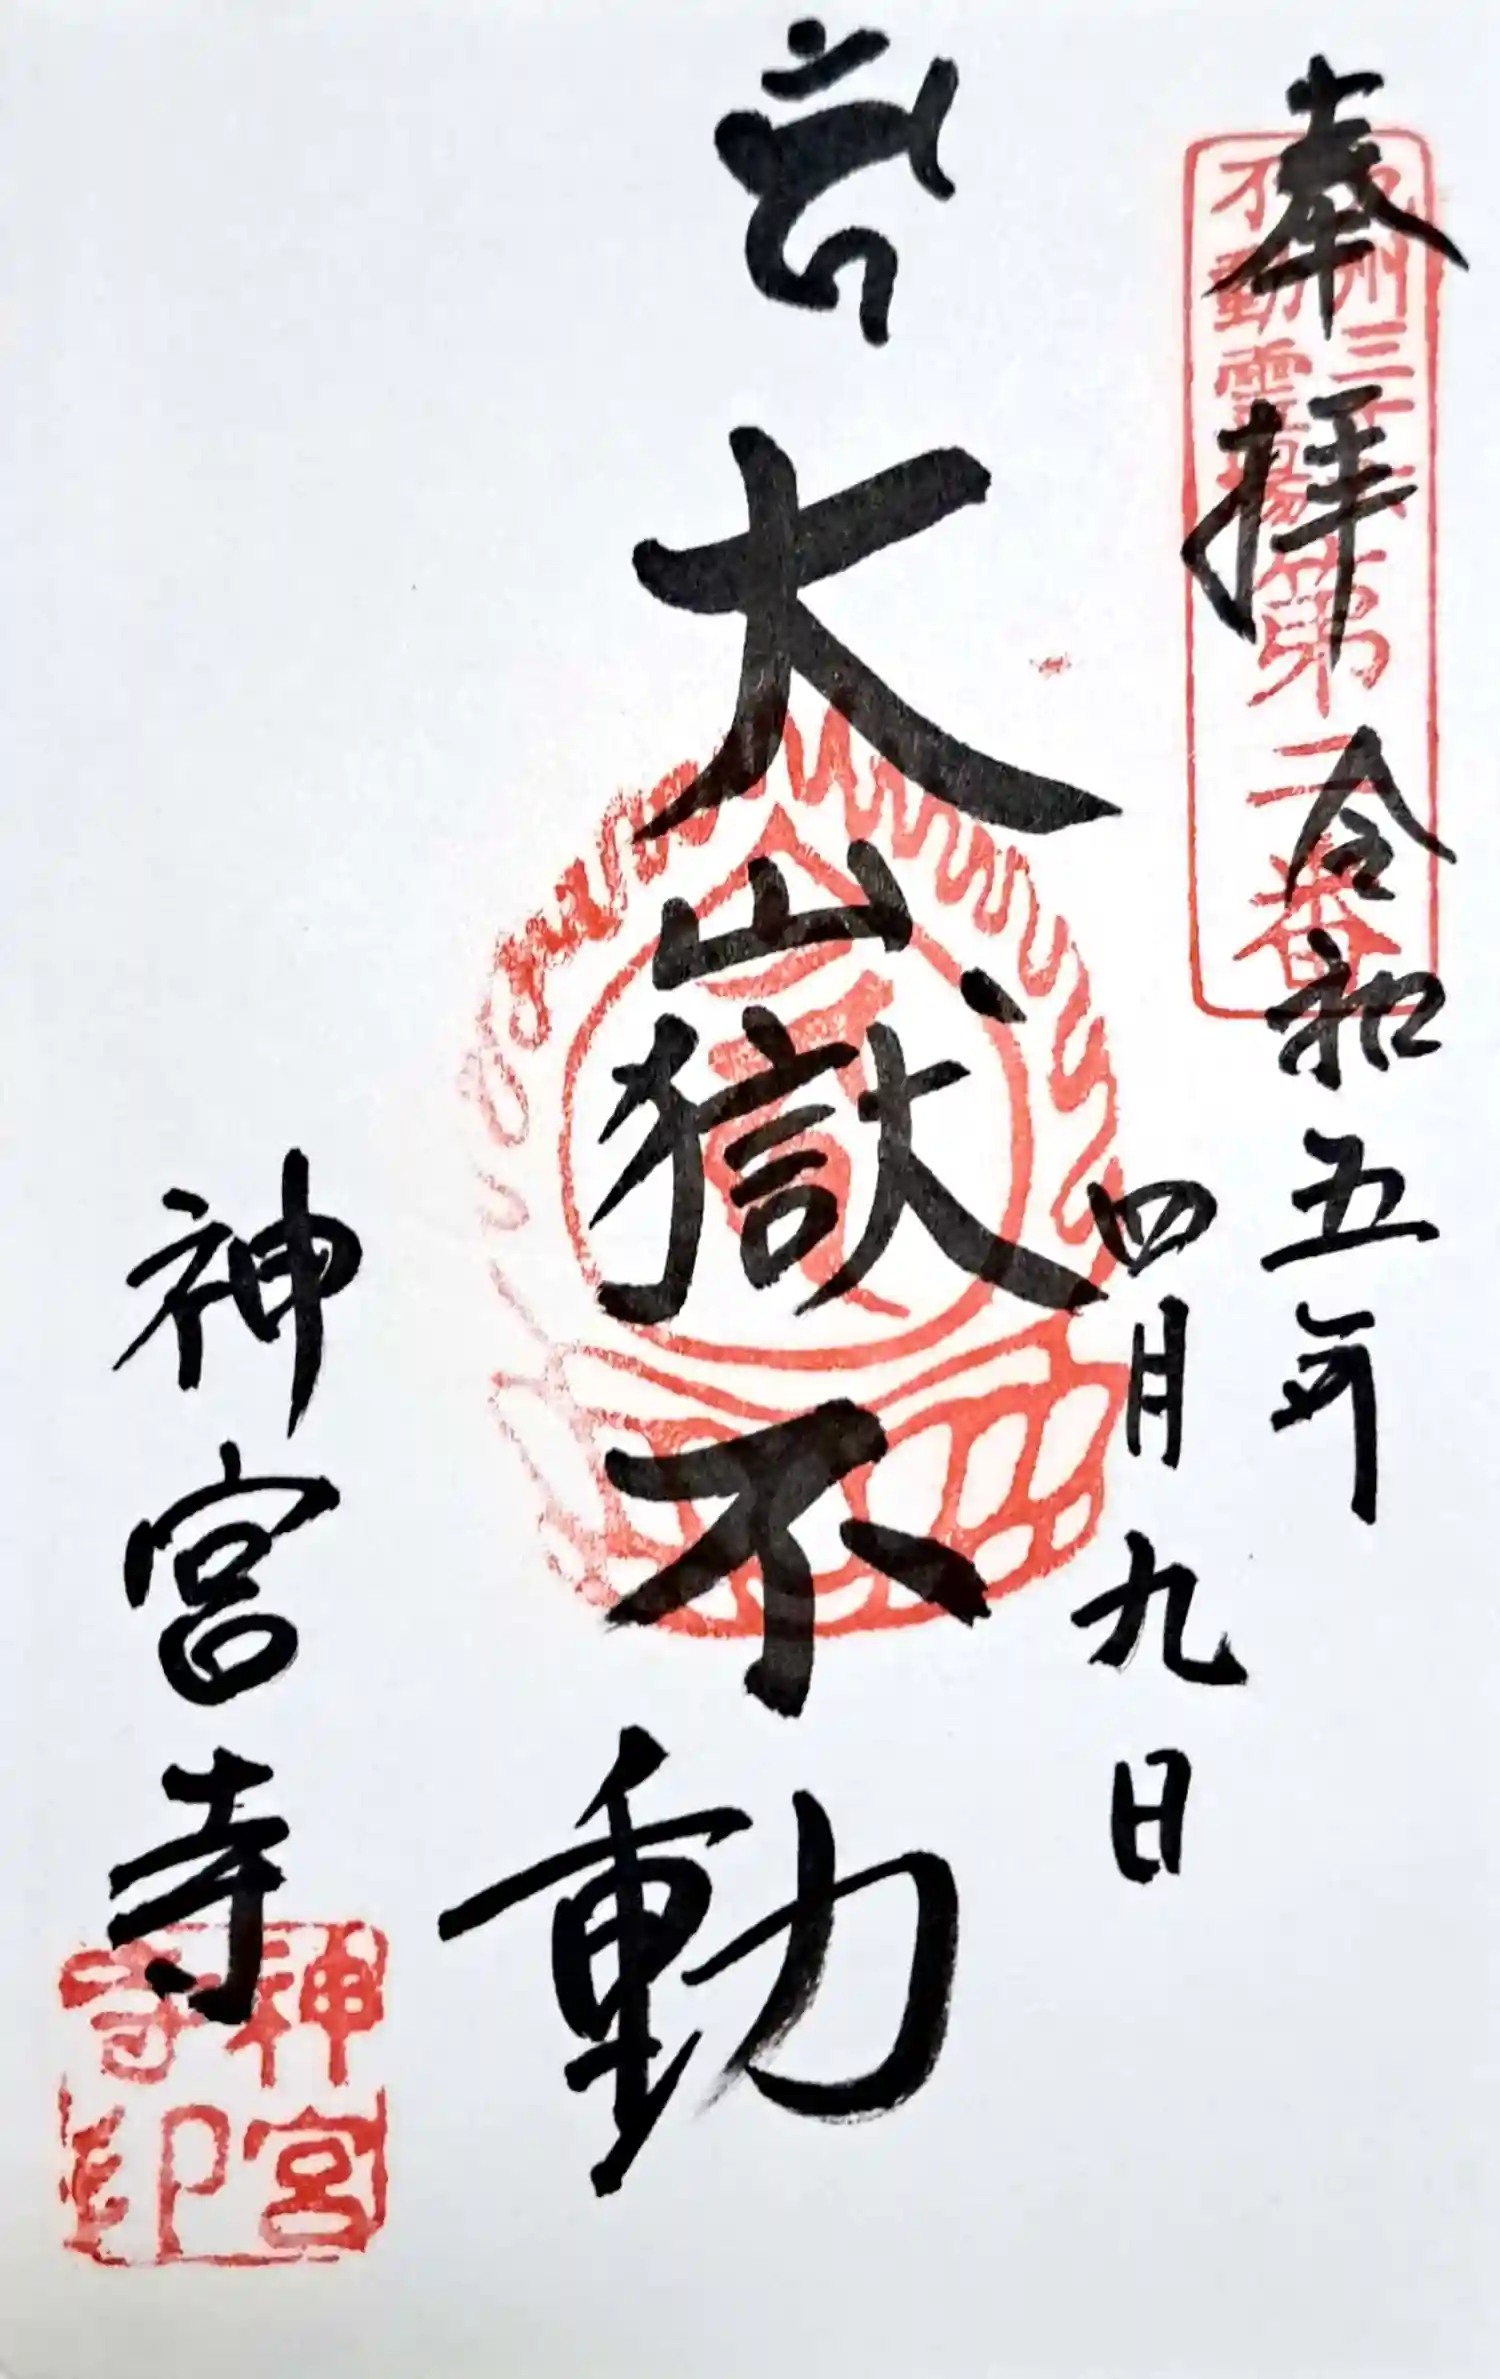 奉拝
令和五年
四月九日
九州三十六
不動霊場
第二番
大嶽不動
神宮寺
神宮
寺印